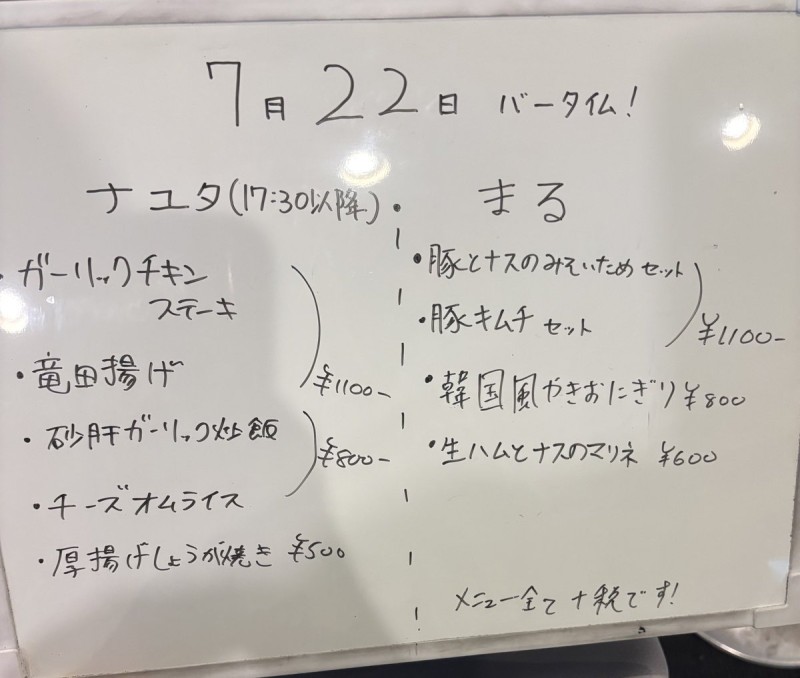 7月22日 バータイム!
ナユタ(17:30以降)
・ガーリックチキン
ステーキ
・竜田揚げ
¥1100-
・砂肝ガーリック炒飯
¥800-
・チーズオムライス
・厚揚げしょうが焼き ¥500
まる
・豚とナスのみそいためセット
・豚キムチ セット
¥1100-
・韓国風やきおにぎり ¥800
・生ハムとナスのマリネ ¥600
メニュー全て+税です!